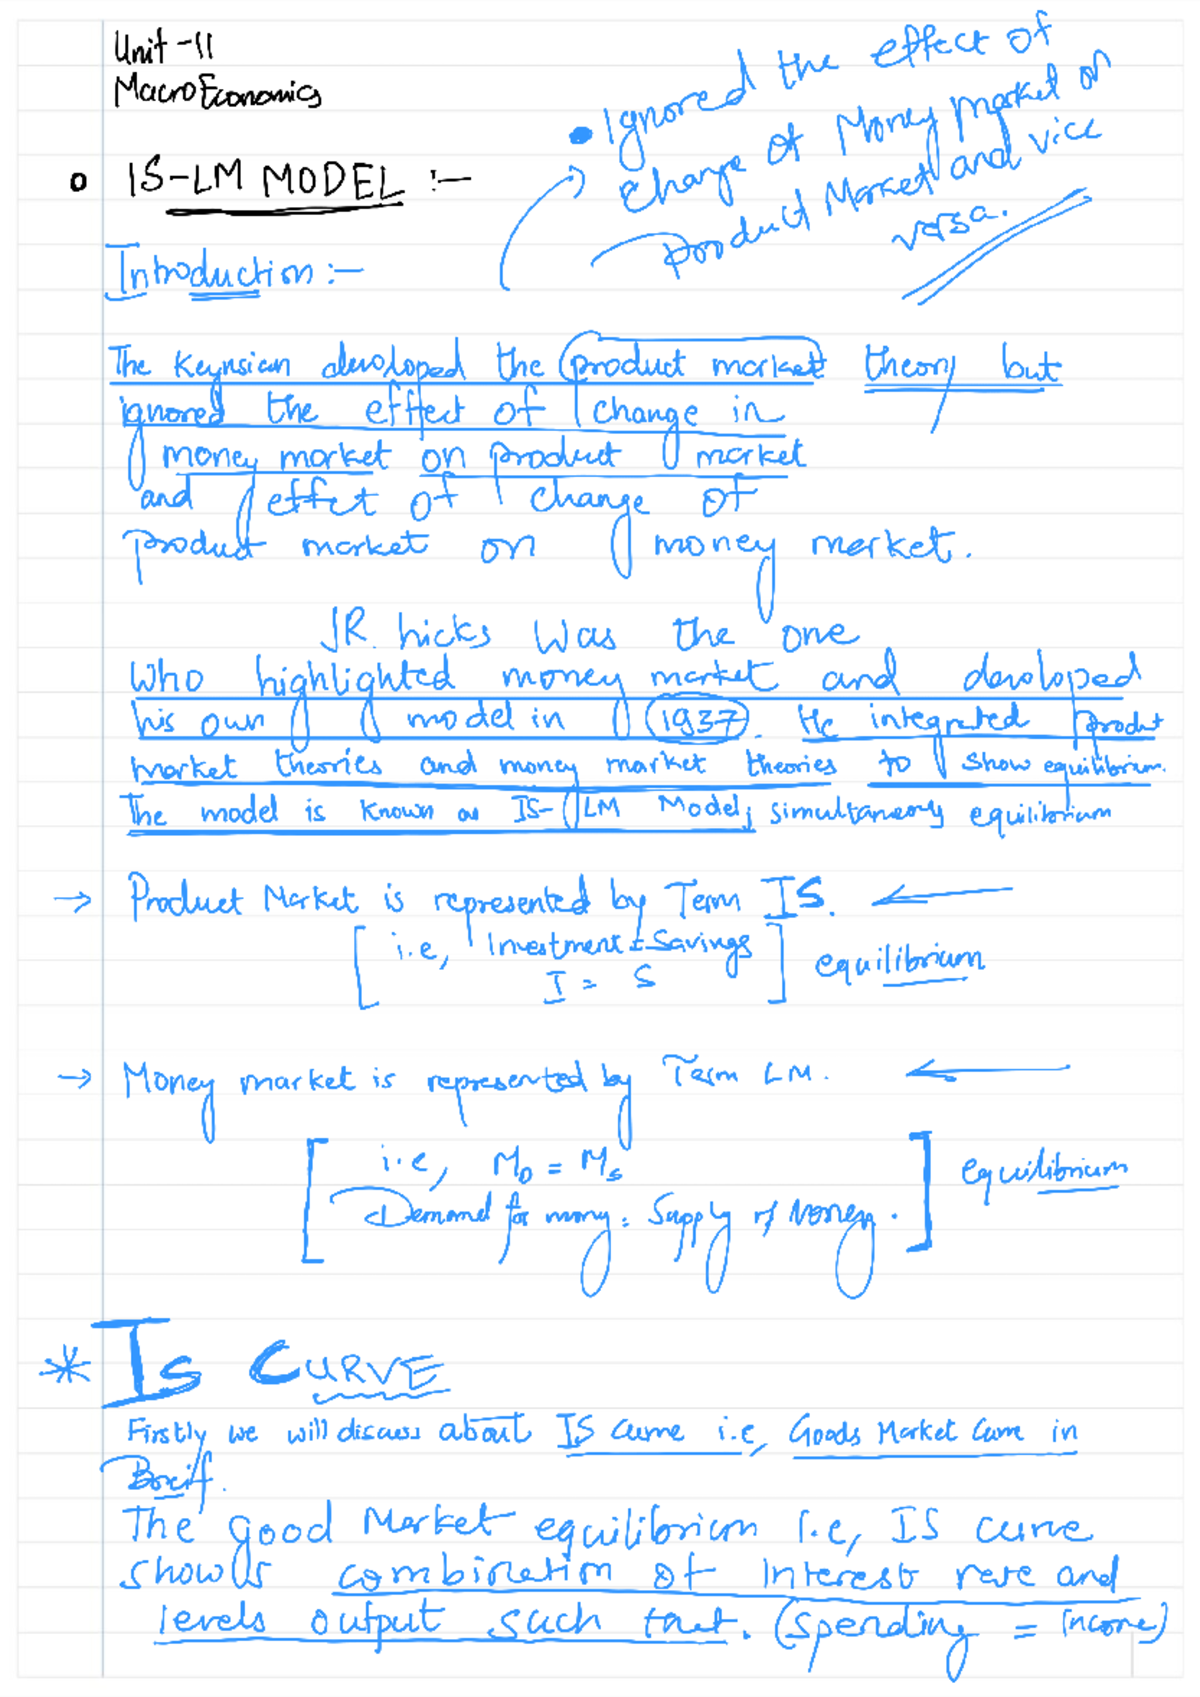 Unit -11
MacroEconomics
• Ignored the effect of
change of Money Market on
Product Market and vice
versa.
o IS-LM MODEL :-
Introduction :-
The Keynsian developed the product market theory but
ignored the effect of change in
money market on product market
and effect of change of
product market on money market.
JR. hicks Was the one
Who highlighted money market and developed
his own model in 1937. He integrated product
market theories and money market theories to show equilibrium.
The model is known as IS-LM Model; simultaneously equilibrium
→ Product Market is represented by Term IS. ←
[ i.e, Investment = Savings
I = S ] equilibrium
→ Money market is represented by Term LM. ←
[ i.e, MD = Ms
Demand for money = Supply of Money. ] equilibrium
* Is CURVE
Firstly we will discuss about IS curve i.e, Goods Market Curve in
Breif.
The good Market equilibrium i.e, IS curve
shows combination of interest rate and
levels output such that. (Spending = income)